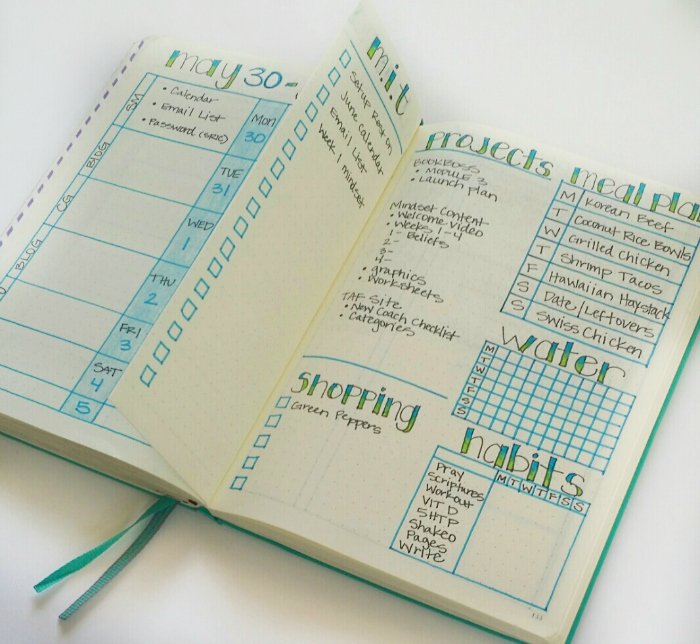 may 30-
SM
BLOG
CG
BLOG
• Calendar
• Email List
• Password (SRIC)
MON
30
TUE
31
WED
1
THU
2
FRI
3
SAT
4
5
m.i.t
Setup Rest on
June Calendar
Email List
Week 1 mindset
projects
BOOKBOSS
• MODULE 3
• Launch plan
Mindset Content
• Welcome video
• Weeks 1-4
1- Beliefs
2-
3-
4-
• graphics
• Worksheets
TAF Site
• New Coach Checklist
• Categories
Shopping
Green Peppers
meal pla
M Korean Beef
T Coconut Rice Bowls
W Grilled Chicken
T Shrimp Tacos
F Hawaiian Haystack
S Date/Leftovers
S Swiss Chicken
water
M
T
W
T
F
S
S
habits
M T W T F S S
Pray
Scriptures
Workout
VIT D
5HTP
Shakeo
Pages
Write